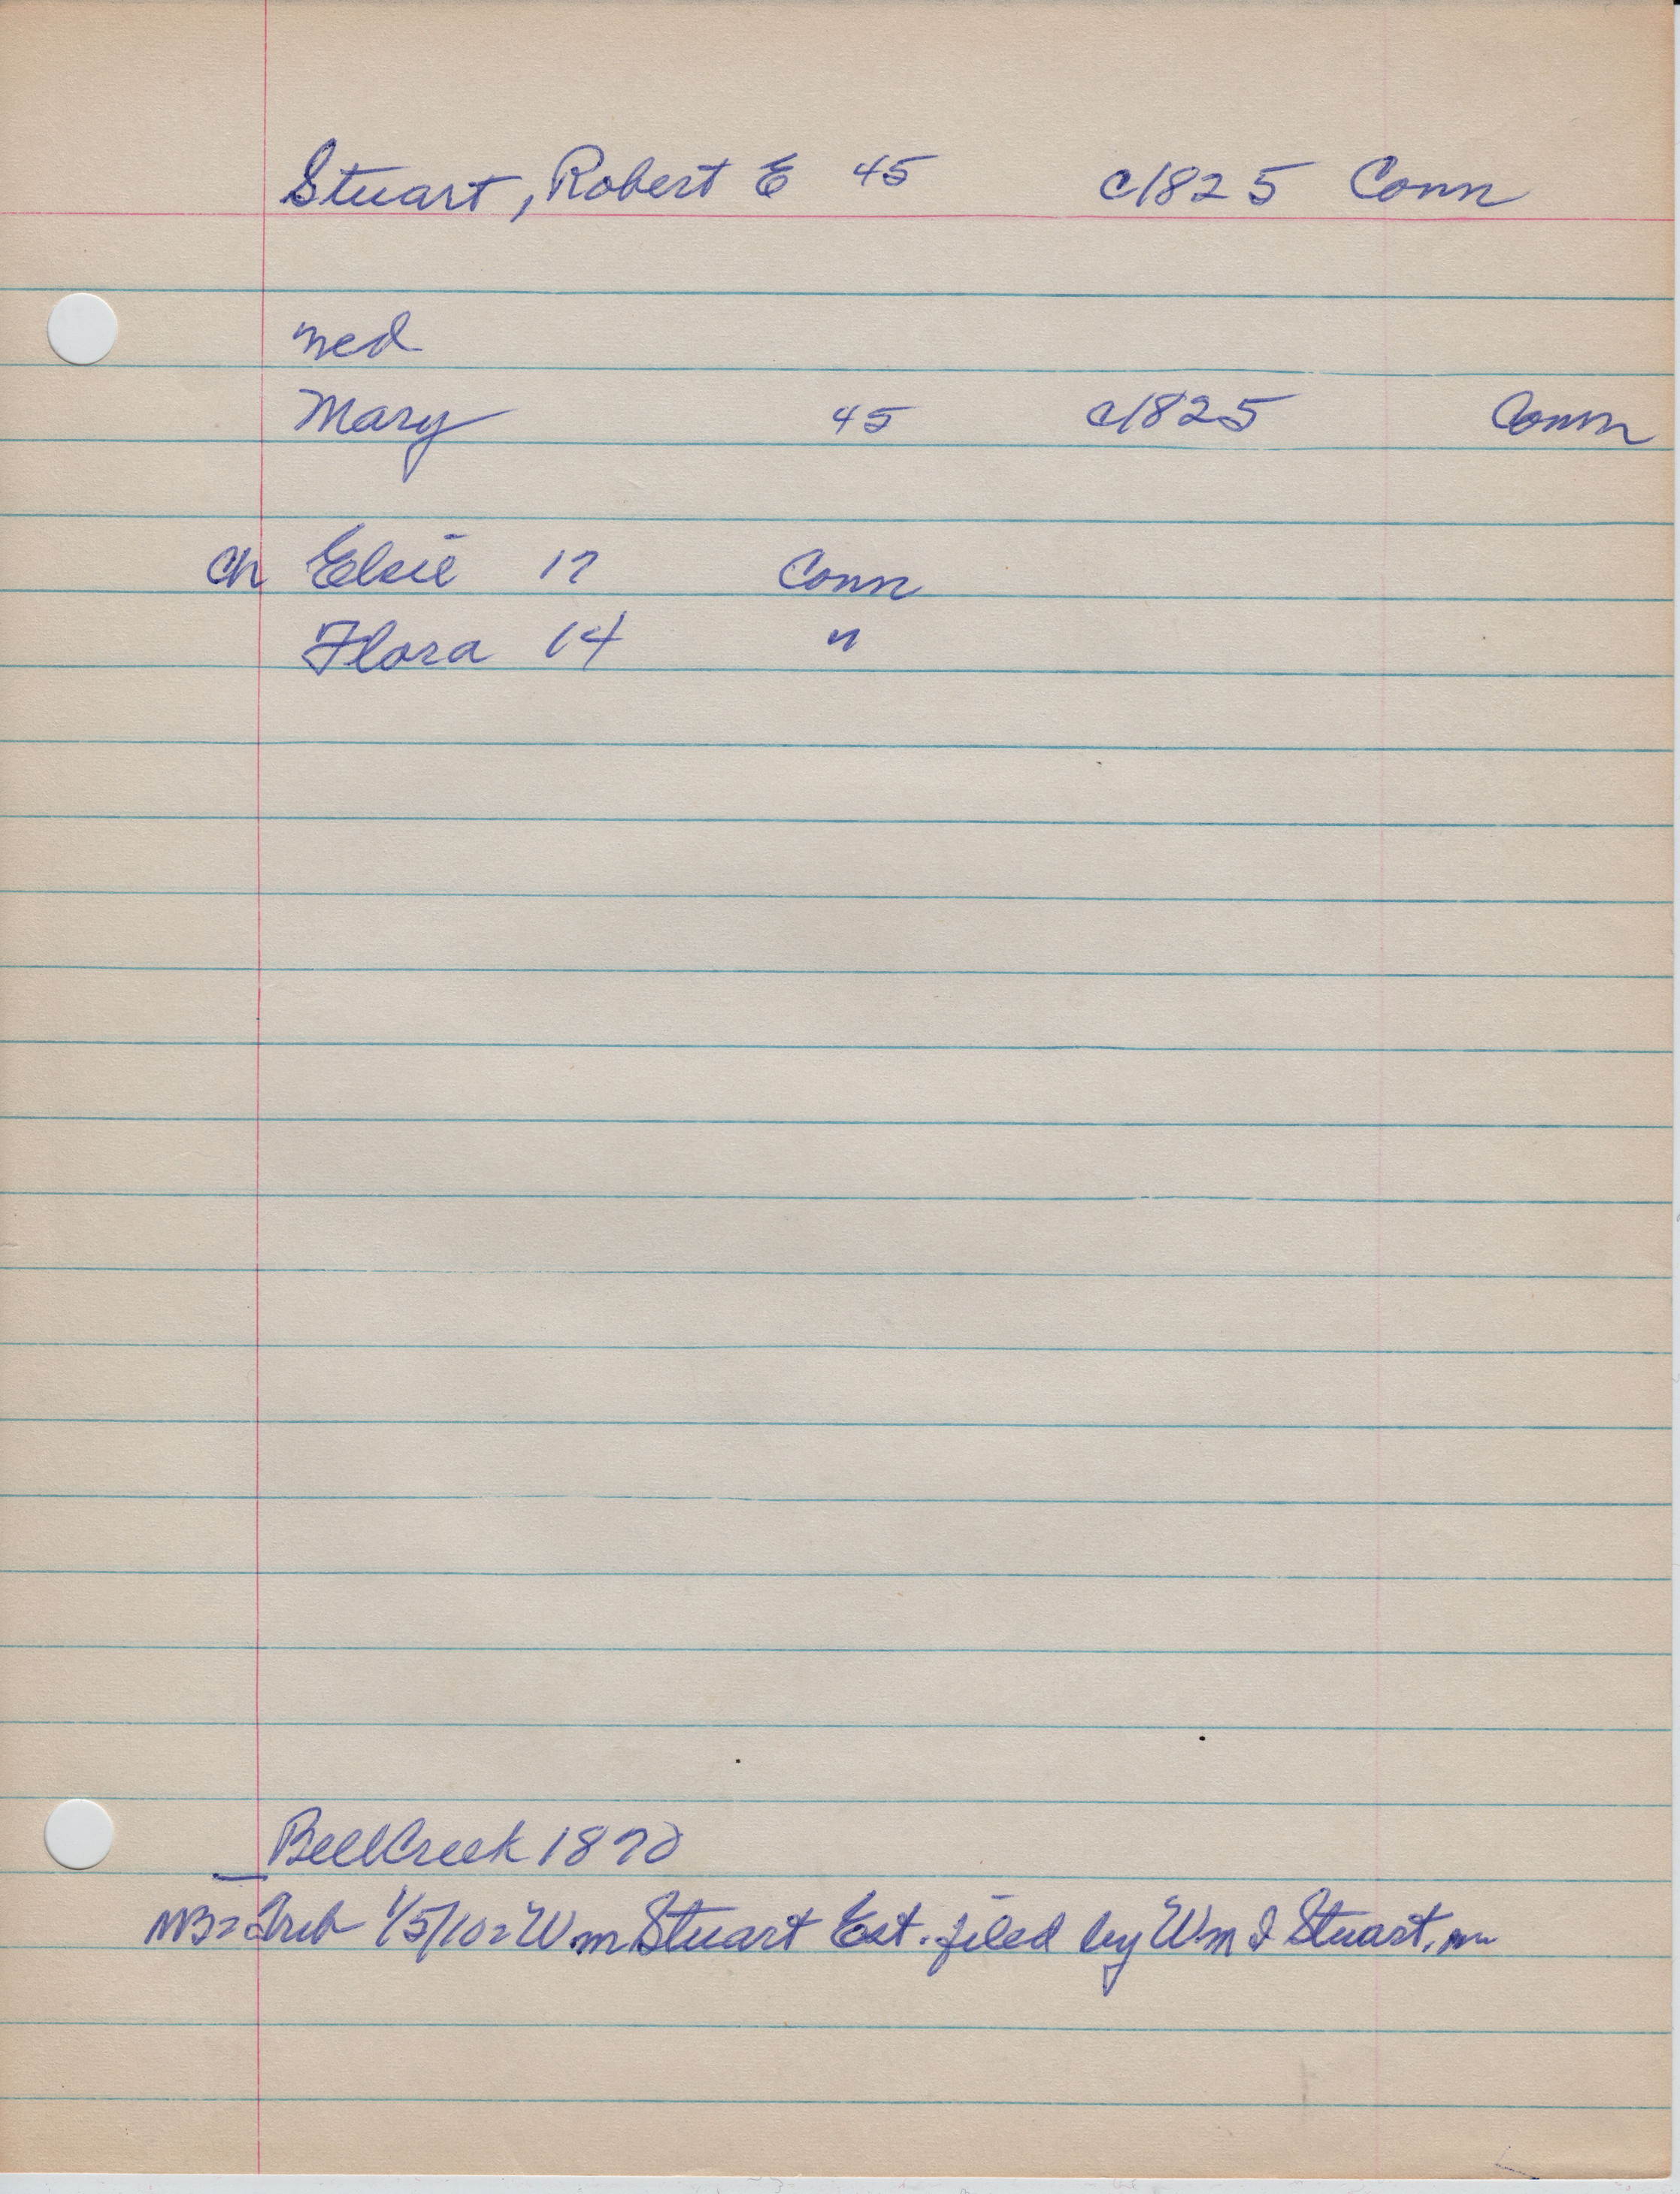 Stuart, Robert E 45 c1825 Conn
med
Mary 45 c1825 Conn
ch Elsie 17 Conn
Flora 14 "
Bell Creek 1870
NB= Trib 1/5/10= Wm Stuart Est. filed by Wm I Stuart,